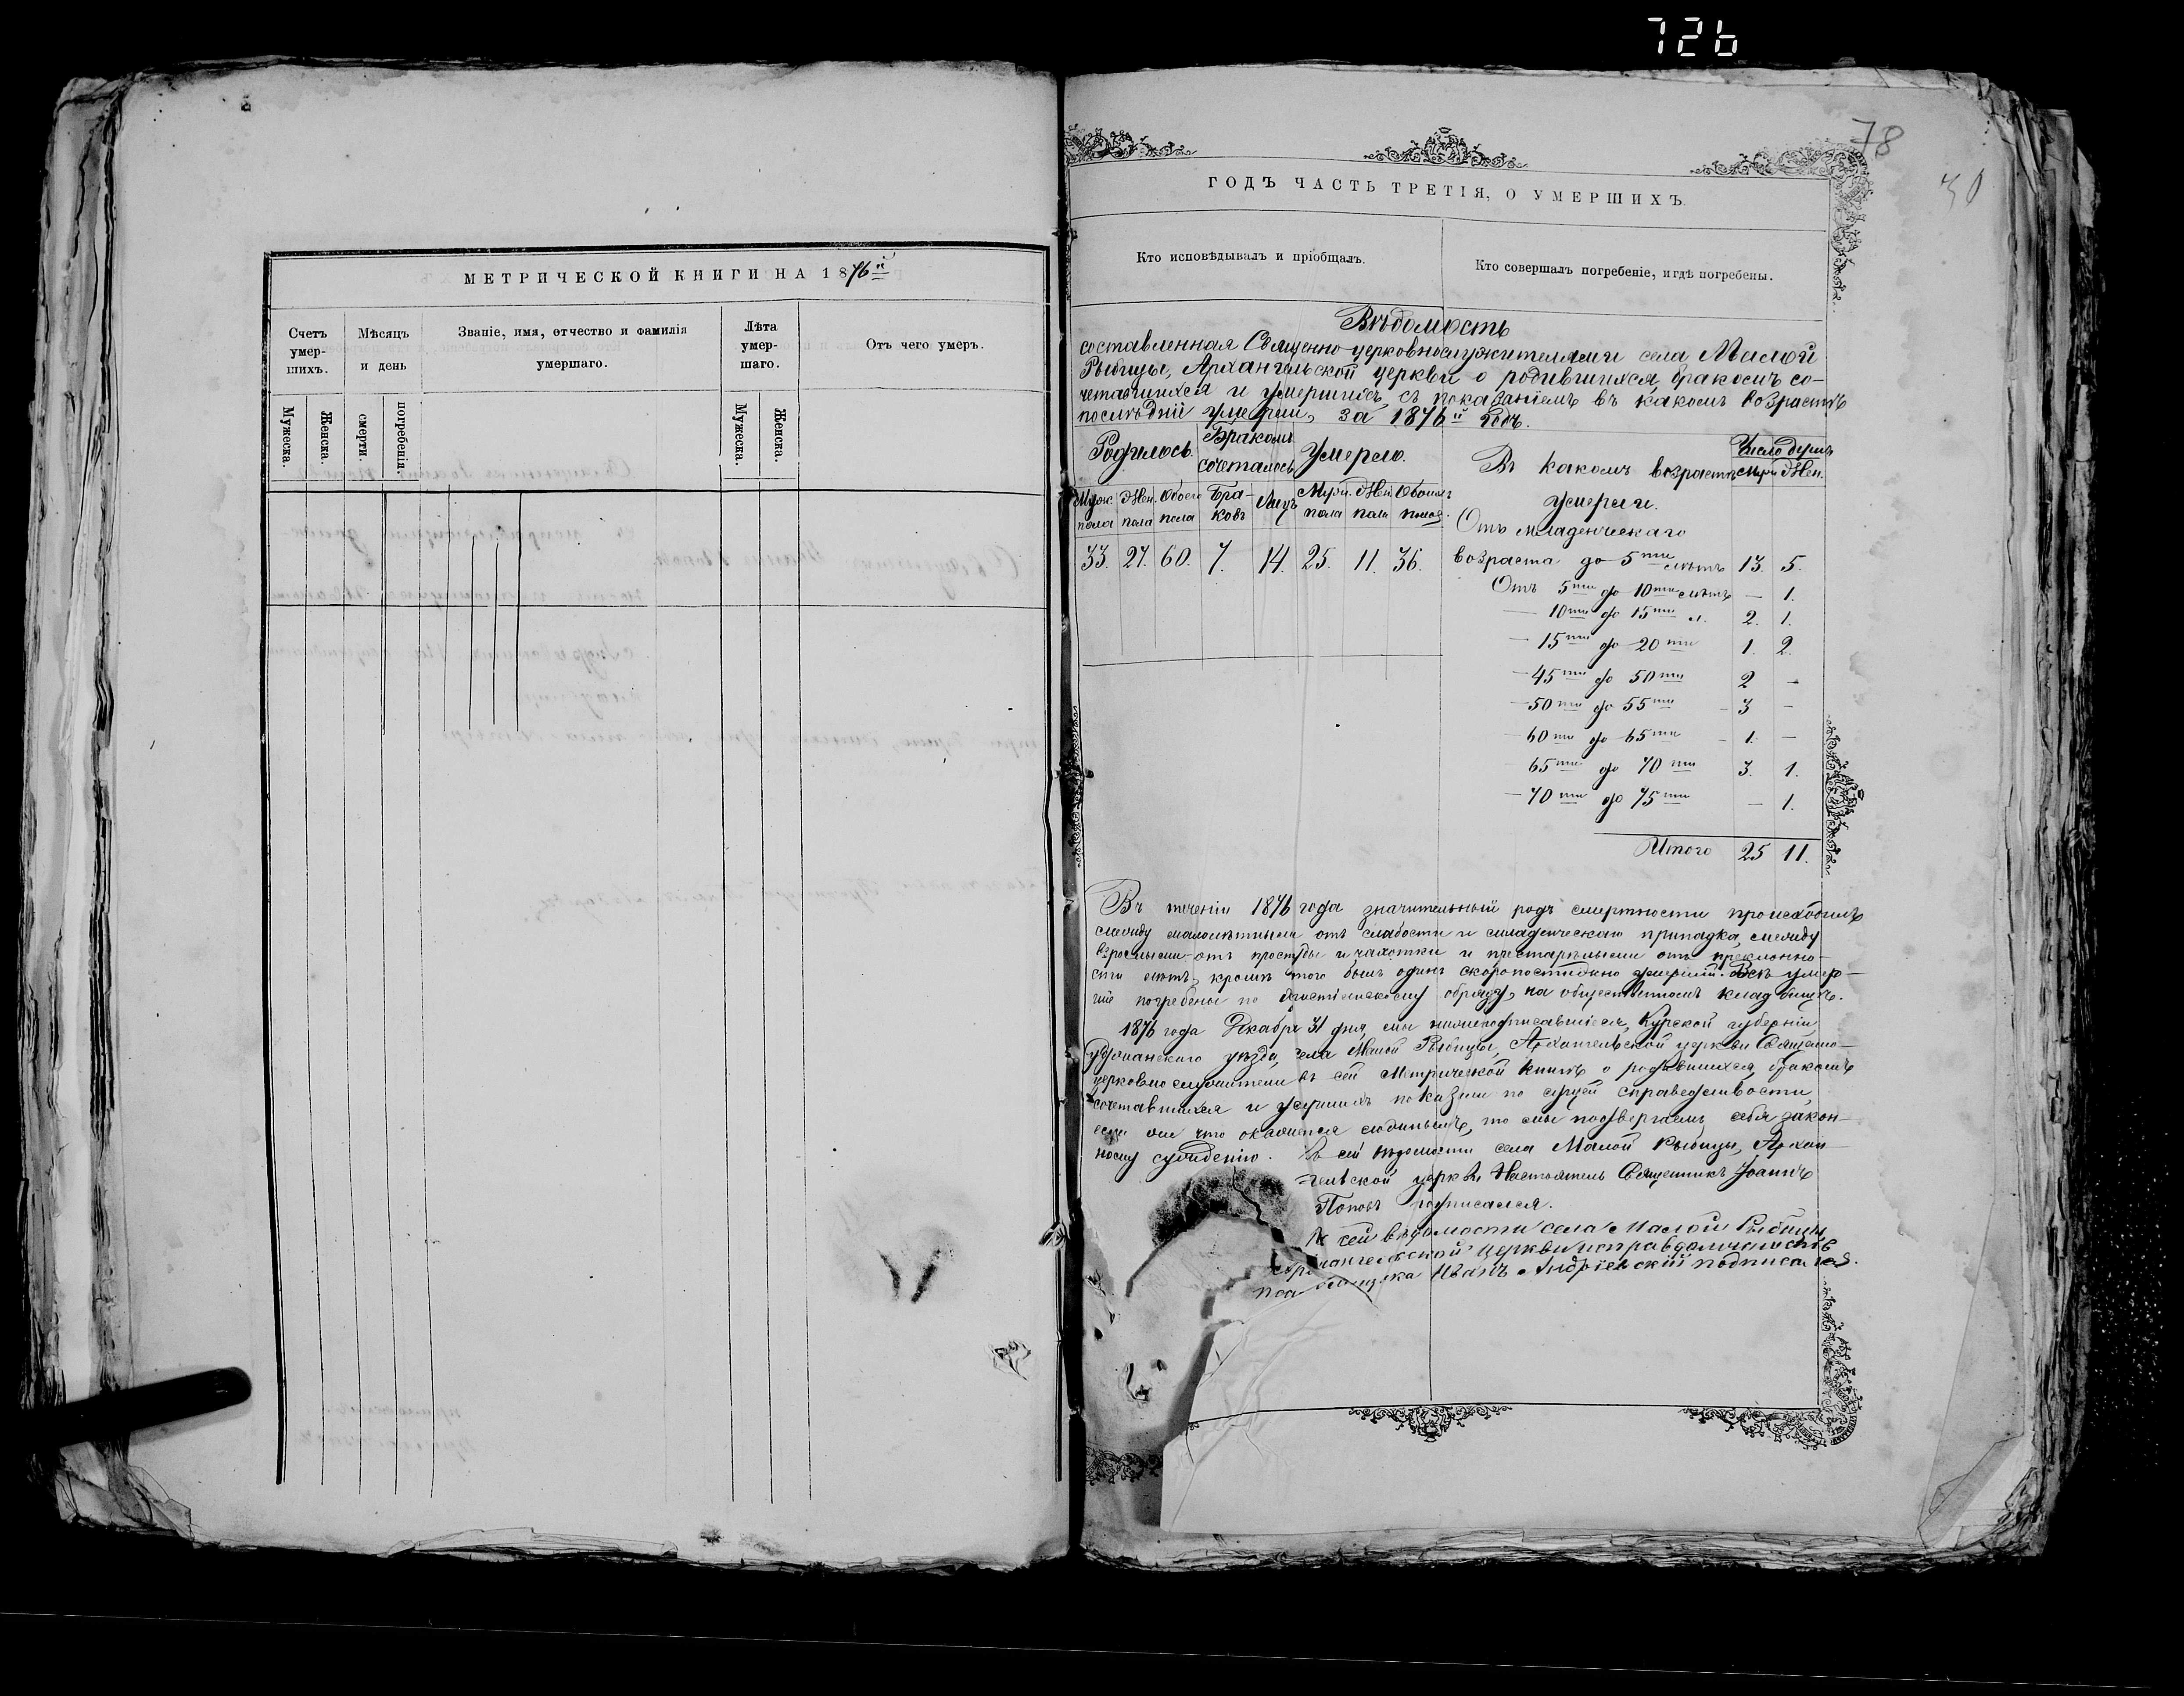 726
78
30
МЕТРИЧЕСКОЙ КНИГИ НА 1876й
Счетъ умер-шихъ.
Мѣсяцъ и день
Званіе, имя, отчество и фамилія умершаго.
Лѣта умер-шаго.
Отъ чего умеръ.
Мужеска.
Женска.
смерти.
погребенія.
Мужеска.
Женска.
ГОДЪ ЧАСТЬ ТРЕТІЯ, О УМЕРШИХЪ
Кто исповѣдывалъ и пріобщалъ.
Кто совершалъ погребеніе, и гдѣ погребены.
Вѣдомость
составленная Священно-церковнослужителями села Малой
Рыбицы, Архангельской церкви о родившихся, бракомъ со-
четавшихся и умершихъ, съ показаніемъ въ какомъ возрастѣ
послѣдніи умерли, за 1876й годъ.
Родилось. Бракомъ сочеталось Умерло.
Муж. пола Жен. пола Обоего пола Бра-ковъ Лицъ Муж. пола Жен. пола Обоихъ половъ.
33. 27. 60. 7. 14. 25. 11. 36.
Въ какомъ возрастѣ умерли.
Число душъ
Муж. Жен.
Отъ младенческаго
возраста до 5ти лѣтъ 13. 5.
Отъ 5ти до 10ти лѣтъ — 1.
— 10ти до 15ти л. 2. 1.
— 15ти до 20ти 1. 2.
— 45ти до 50ти 2 —
— 50ти до 55ти 3 —
60ти до 65ти 1. —
65ти до 70ти 3. 1.
— 70ти до 75ти — 1.
Итого 25 11.
Въ теченіи 1876 года значительный родъ смертности происходилъ
между малолѣтними отъ слабости и младенческаго припадка, между
взрослыми отъ простуды и чахотки и престарѣлыми отъ преклонно-
сти лѣтъ, кромѣ того былъ одинъ скоропостижно умершій. Всѣ умер-
шіе погребены по христіанскому обряду, на общественномъ кладбищѣ.
1876 года Декабря 31 дня, мы нижеподписавшіеся, Курской губерніи
Суджанскаго уѣзда, села Малой Рыбицы, Архангельской церкви Священно-
церковнослужители въ сей Метрической книгѣ о родившихся, бракомъ
сочетавшихся и умершихъ показали по сущей справедливости,
если же что окажется ложнымъ, то мы подвергаемъ себя закон-
ному сужденію. Къ сей вѣдомости села Малой Рыбицы, Архан-
гельской церкви Настоятель Священникъ Іоаннъ
Поповъ подписался.
К сей вѣдомости села Малой Рыбицы
Архангельской церкви исправ. должность
псаломщика Иванъ Андріевскій подписался.